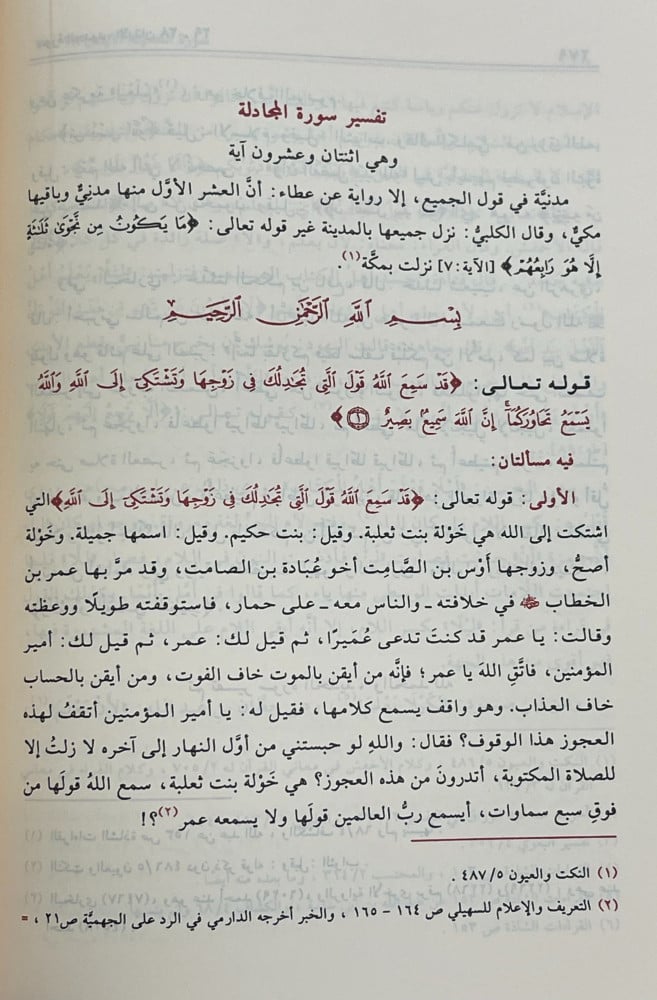 تفسير سورة المجادلة
وهي اثنتان وعشرون آية
مدنيَّة في قول الجميع، إلا رواية عن عطاء: أنَّ العشر الأوَّل منها مدنِيٌّ وباقيها
مكيٌّ، وقال الكلبيُّ: نزل جميعها بالمدينة غير قوله تعالى: ﴿مَا يَكُونُ مِن نَّجْوَىٰ ثَلَٰثَةٍ
إِلَّا هُوَ رَابِعُهُمْ﴾ [الآية:٧] نزلت بمكَّة(١).
بِسْمِ ٱللَّهِ ٱلرَّحْمَٰنِ ٱلرَّحِيمِ
قوله تعالى: ﴿قَدْ سَمِعَ ٱللَّهُ قَوْلَ ٱلَّتِي تُجَٰدِلُكَ فِي زَوْجِهَا وَتَشْتَكِيٓ إِلَى ٱللَّهِ وَٱللَّهُ
يَسْمَعُ تَحَاوُرَكُمَآۚ إِنَّ ٱللَّهَ سَمِيعٌۢ بَصِيرٌ ۝١﴾
فيه مسألتان:
الأولى: قوله تعالى: ﴿قَدْ سَمِعَ ٱللَّهُ قَوْلَ ٱلَّتِي تُجَٰدِلُكَ فِي زَوْجِهَا وَتَشْتَكِيٓ إِلَى ٱللَّهِ﴾ التي
اشتكت إلى الله هي خَوْلة بنت ثعلبة. وقيل: بنت حكيم. وقيل: اسمها جميلة. وخَوْلة
أصحُّ، وزوجها أَوْس بن الصَّامِت أخو عُبَادة بن الصامت، وقد مرَّ بها عمر بن
الخطاب ﷺ في خلافته ـ والناس معه ـ على حمار، فاستوقفته طويلًا ووعظته
وقالت: يا عمر قد كنتَ تدعى عُمَيرًا، ثم قيل لك: عمر، ثم قيل لك: أمير
المؤمنين، فاتَّقِ اللهَ يا عمر؛ فإنَّه من أيقن بالموت خاف الفوت، ومن أيقن بالحساب
خاف العذاب. وهو واقف يسمع كلامها، فقيل له: يا أمير المؤمنين أتقفُ لهذه
العجوز هذا الوقوف؟ فقال: والله لو حبستني من أوَّل النهار إلى آخره لا زلتُ إلا
للصلاة المكتوبة، أتدرونَ من هذه العجوز؟ هي خَوْلة بنت ثعلبة، سمع اللهُ قولَها من
فوقِ سبع سماوات، أيسمع ربُّ العالمين قولَها ولا يسمعه عمر(٢)؟!
(١) النكت والعيون ٥/ ٤٨٧ .
(٢) التعريف والإعلام للسهيلي ص ١٦٤ - ١٦٥ ، والخبر أخرجه الدارمي في الرد على الجهميَّة ص٢١ ، =